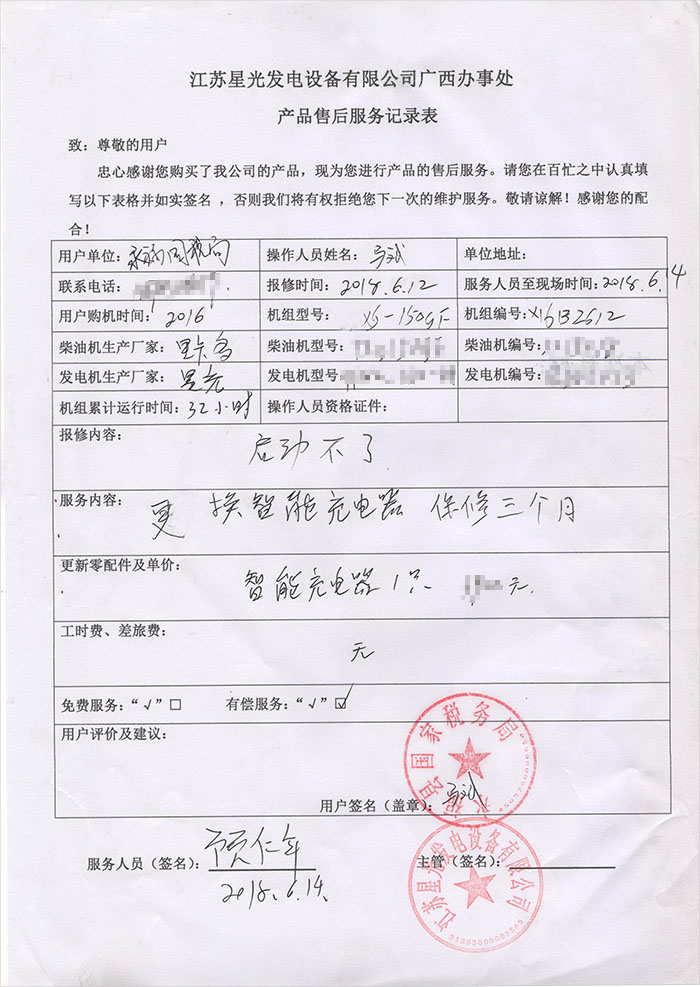 江苏星光发电设备有限公司广西办事处
产品售后服务记录表
致：尊敬的用户
忠心感谢您购买了我公司的产品，现为您进行产品的售后服务。请您在百忙之中认真填
写以下表格并如实签名，否则我们将有权拒绝您下一次的维护服务。敬请谅解！感谢您的配
合！
用户单位：永福国税局 操作人员姓名： 单位地址：
联系电话： 报修时间：2018.6.12 服务人员至现场时间：2018.6.14
用户购机时间：2016 机组型号：XG-150GF 机组编号：X16B2612
柴油机生产厂家： 柴油机型号： 柴油机编号：
发电机生产厂家：星光 发电机型号： 发电机编号：
机组累计运行时间：32小时 操作人员资格证件：
报修内容：
启动不了
服务内容：
更换智能充电器 保修三个月
更新零配件及单价：
智能充电器1只 元
工时费、差旅费：
无
免费服务：“√”□ 有偿服务：“√”☑
用户评价及建议：
永福县国家税务局
用户签名（盖章）：
服务人员（签名）：贾仁年 主管（签名）：
2018.6.14
江苏星光发电设备有限公司